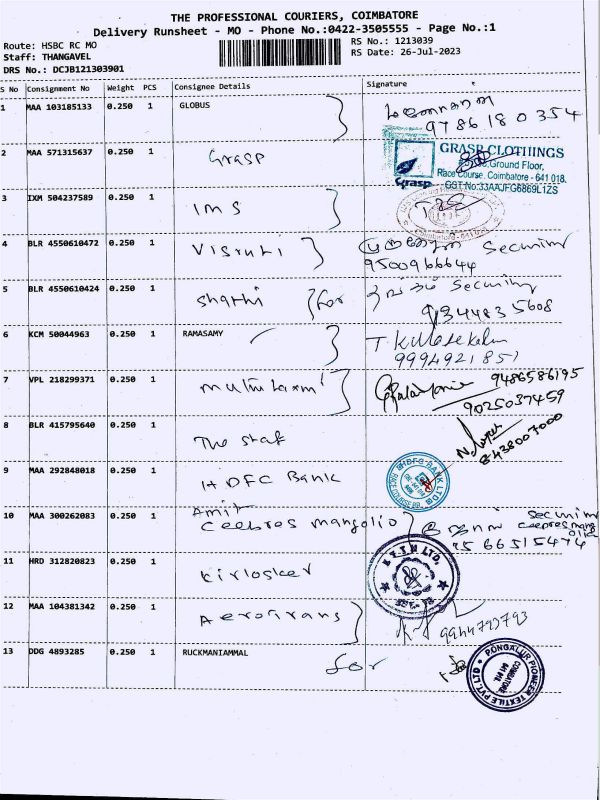 THE PROFESSIONAL COURIERS, COIMBATORE
Delivery Runsheet - MO - Phone No.:0422-3505555 - Page No.:1
Route: HSBC RC MO
Staff: THANGAVEL
DRS No.: DCJB121303901
RS No.: 1213039
RS Date: 26-Jul-2023
S No Consignment No Weight PCS Consignee Details Signature
1 MAA 103185133 0.250 1 GLOBUS
9786180354
2 MAA 571315637 0.250 1 Grasp
GRASP CLOTHINGS
Ground Floor,
Race Course, Coimbatore - 641 018.
GST No:33AAJFG6869L1ZS
Grasp
3 IXM 504237589 0.250 1 IMS
4 BLR 4550610472 0.250 1
9500966644
5 BLR 4550610424 0.250 1 Shathi for
9344835608
6 KCM 50044963 0.250 1 RAMASAMY
9994921851
7 VPL 218299371 0.250 1
9486586195
9025037459
8 BLR 415795640 0.250 1 The
8438007000
9 MAA 292848018 0.250 1 HDFC Bank
HDFC BANK LTD
10 MAA 300262083 0.250 1 Amit
Ceebros mangolio
11 HRD 312820823 0.250 1 Kirlosker
12 MAA 104381342 0.250 1 Aerotrans
9944793793
13 DDG 4893285 0.250 1 RUCKMANIAMMAL
for
PONGALUR PIONEER TEXTILE PVT. LTD
COIMBATORE